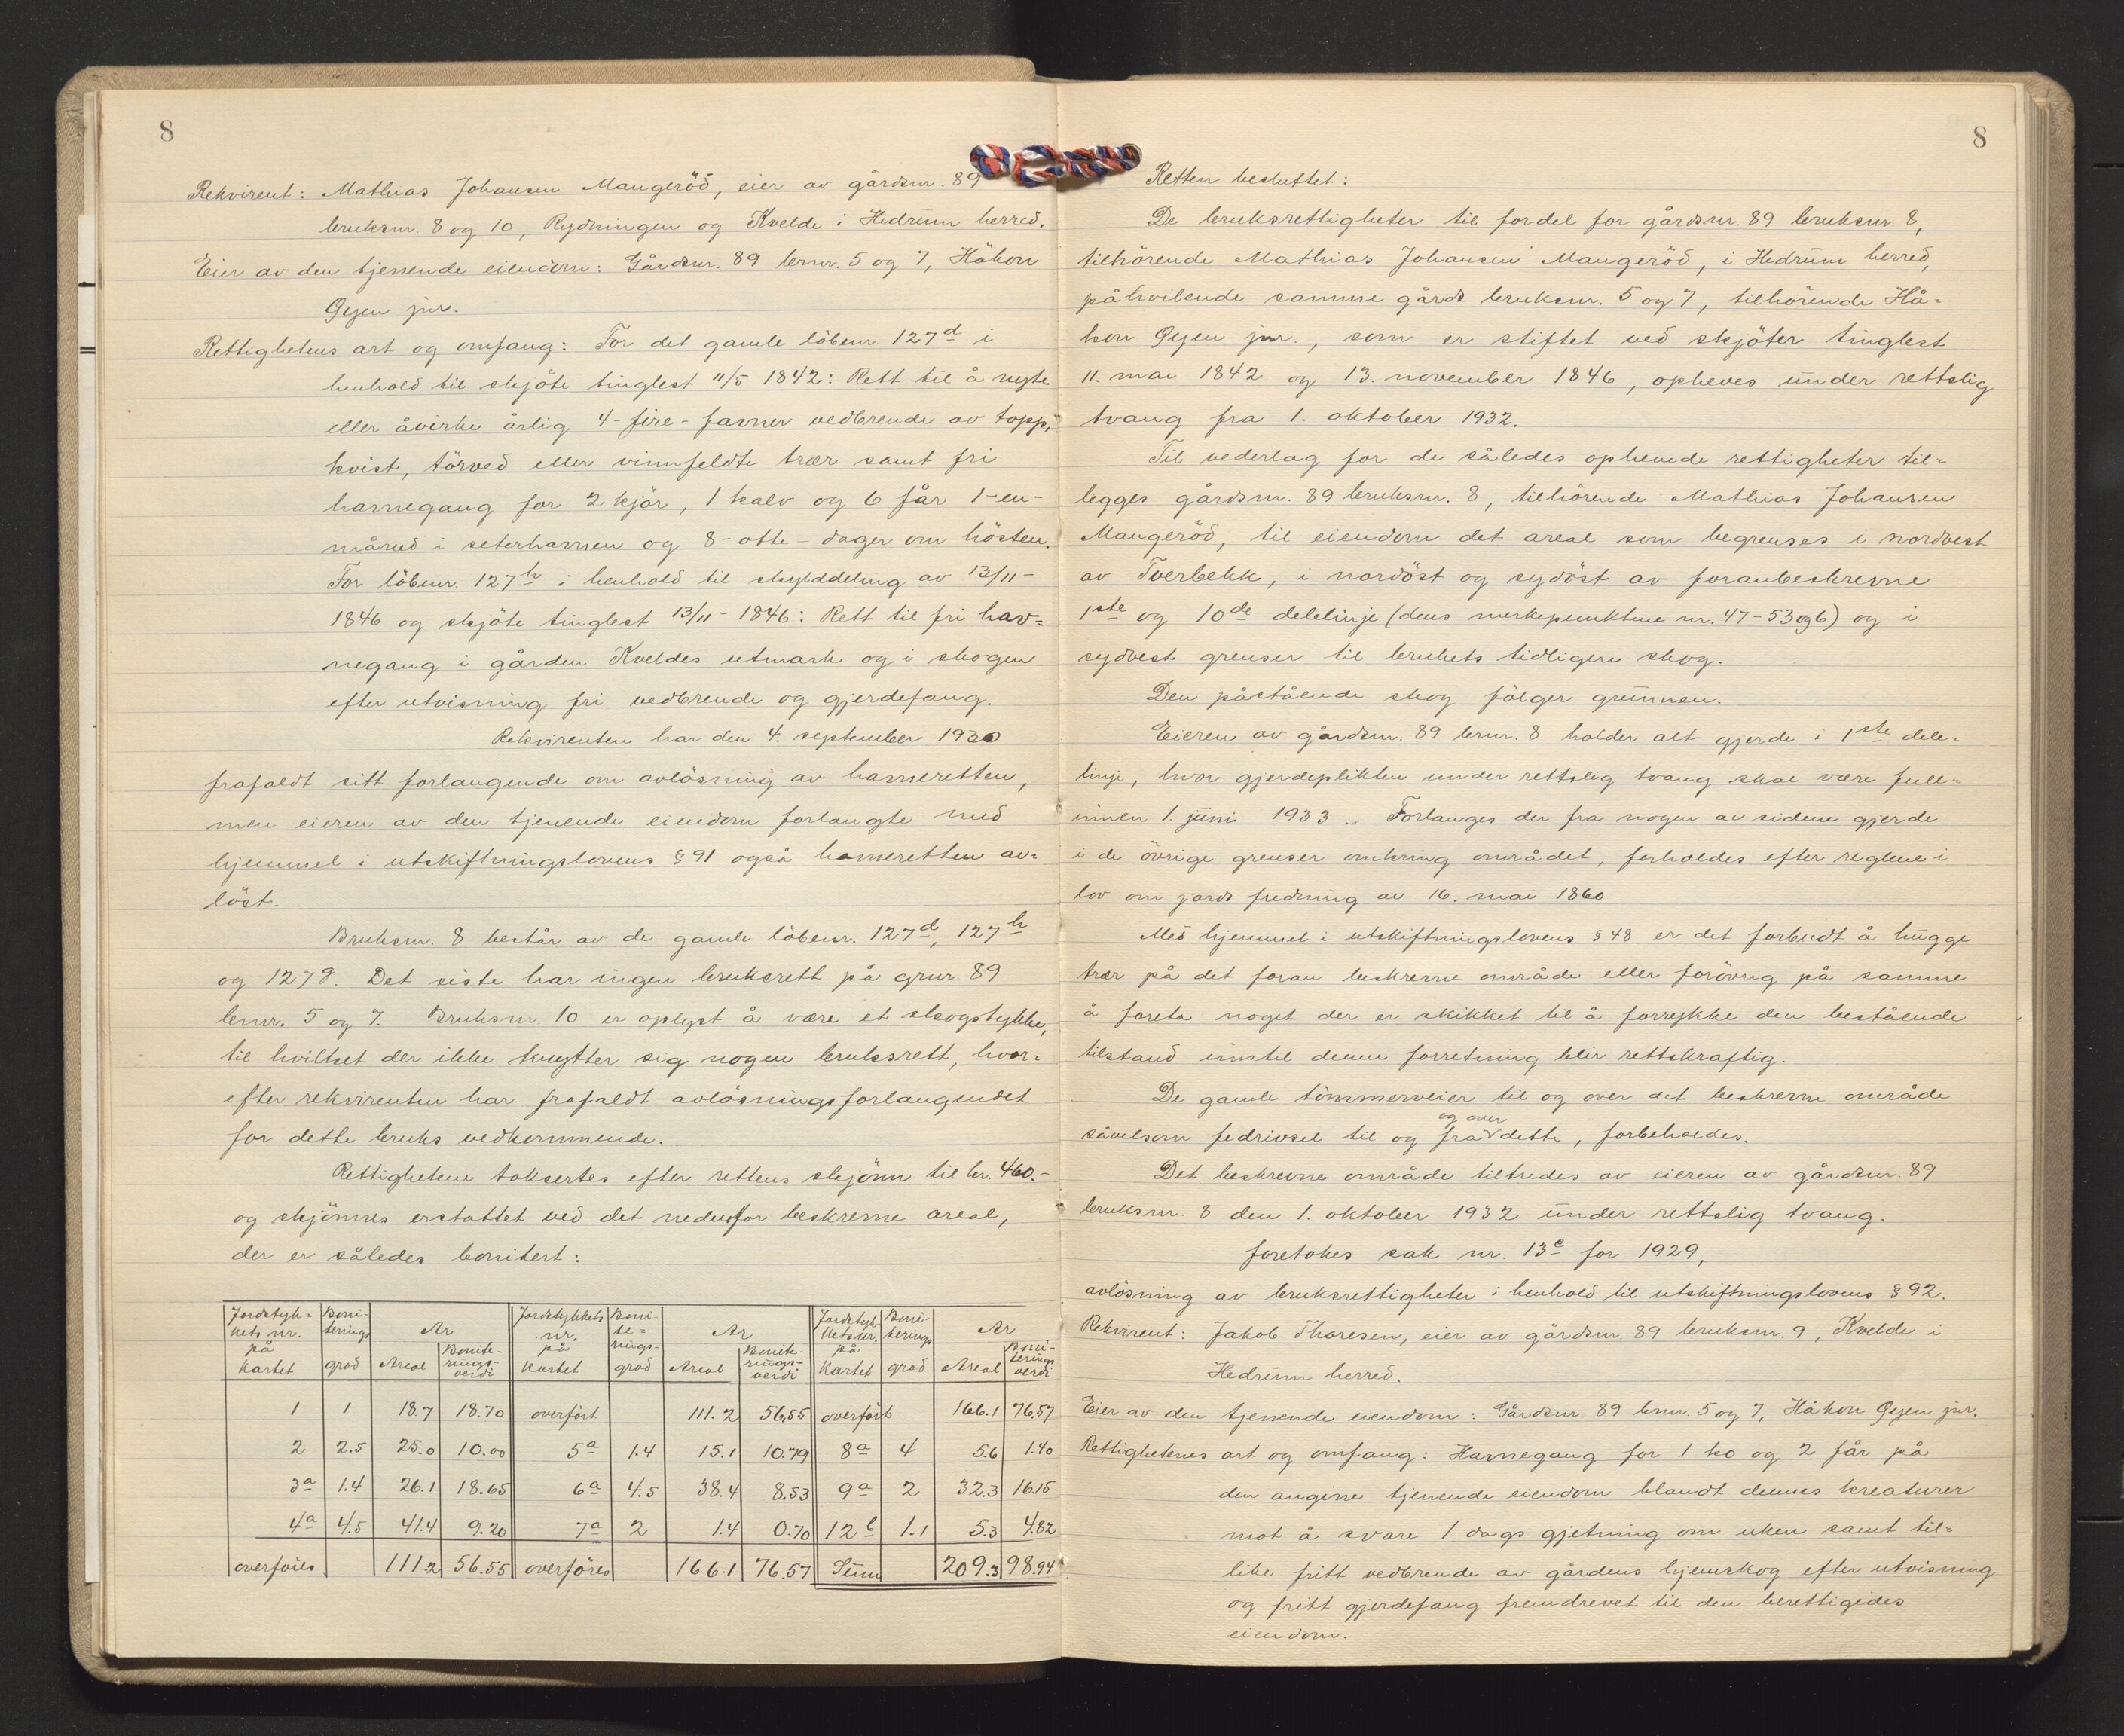 8
Rekvirent: Mathias Johansen Mangeröd, eier av gårdsnr. 89
bruksnr. 8 og 10, Rydningen og Kvelde i Hedrum herred.
Eier av den tjenende eiendom: Gårdsnr. 89 brnr. 5 og 7, Håkon
Gjen jnr.
Rettighetens art og omfang: For det gamle löbenr. 127d i
henhold til skjöte tinglest 11/5 1842: Rett til å nyte
eller åvirke årlig 4-fire-favner vedbrende av topp,
kvist, törved eller vinnfeldte trær samt fri
havnegang for 2 kjör, 1 kalv og 6 får 1-en-
måned i seterhavnen og 8-otte-dager om hösten.
For löbenr. 127h i henhold til skylddeling av 13/11-
1846 og skjöte tinglest 13/11-1846: Rett til fri hav=
negang i gården Kveldes utmark og i skogen
efter utvisning fri vedbrende og gjerdefang.
Rekvirenten har den 4. september 1930
frafaldt sitt forlangende om avlösning av havneretten,
men eieren av den tjenende eiendom forlangte med
hjemmel i utskiftningslovens § 91 også havneretten av=
löst.
Bruksnr. 8 består av de gamle löbenr. 127d, 127h
og 127g. Det siste har ingen bruksrett på gnr 89
brnr. 5 og 7. Bruksnr. 10 er oplyst å være et skogstykke,
til hvilket der ikke knytter sig nogen bruksrett, hvor=
efter rekvirenten har frafaldt avlösningsforlangendet
for dette bruks vedkommende.
Rettighetene taksertes efter rettens skjönn til kr. 460.-
og skjönnes erstattet ved det nedenfor beskrevne areal,
der er således bonitert:
Jordstyk= Boni- Jordstykkets Boni- Jordstyk Boni-
kets nr. terings Ar nr. te= Ar kets nr. terings Ar
på Bonite- på rings- Bonite- på Boni-
kartet grad Areal rings- verdi kartet grad Areal rings- verdi kartet grad Areal terings verdi
1 1 18.7 18.70 overfört 111.2 56.55 overfört 166.1 76.57
2 2.5 25.0 10.00 5a 1.4 15.1 10.79 8a 4 5.6 1.40
3a 1.4 26.1 18.65 6a 4.5 38.4 8.53 9a 2 32.3 16.15
4a 4.5 41.4 9.20 7a 2 1.4 0.70 12b 1.1 5.3 4.82
overföres 111.2 56.55 overföres 166.1 76.57 Sum 209.3 98.94
8
Retten besluttet:
De bruksrettigheter til fordel for gårdsnr. 89 bruksnr. 8,
tilhörende Mathias Johansen Mangeröd, i Hedrum herred,
påhvilende samme gårds bruksnr. 5 og 7, tilhörende Hå=
kon Gjen jnr., som er stiftet ved skjöter tinglest
11. mai 1842 og 13. november 1846, opheves under rettslig
tvang fra 1. oktober 1932.
Til vederlag for de således ophevede rettigheter til=
legges gårdsnr. 89 bruksnr. 8, tilhörende Mathias Johansen
Mangeröd, til eiendom det areal som begrenses i nordvest
av Tverbekk, i nordöst og sydöst av foranbeskrevne
1ste og 10de delelinje (dens merkepunktene nr. 47-53 og 6) og i
sydvest grenser til brukets tidligere skog.
Den påstående skog fölger grunnen.
Eieren av gårdsnr. 89 brnr. 8 holder alt gjerde i 1ste dele=
linje, hvor gjerdeplikten under rettslig tvang skal være full=
innen 1. juni 1933. Forlanges der fra nogen av sidene gjerde
i de övrige grenser omkring området, forholdes efter reglene i
lov om jords fredning av 16. mai 1860
Med hjemmel i utskiftningslovens § 48 er det forbudt å hugge
trær på det foran beskrevne område eller forövrig på samme
å foreta noget der er skikket til å forrykke den bestående
tilstand inntil denne forretning blir rettskraftig.
De gamle tömmerveier til og over det beskrevne område
og over
såvelsom fedrivsel til og fra dette, forbeholdes.
Det beskrevne område tiltredes av eieren av gårdsnr. 89
bruksnr. 8 den 1. oktober 1932 under rettslig tvang.
foretokes sak nr. 13e for 1929,
avlösning av bruksrettigheter i henhold til utskiftningslovens § 92.
Rekvirent: Jakob Thoresen, eier av gårdsnr. 89 bruksnr. 9, Kvelde i
Hedrum herred.
Eier av den tjenende eiendom: Gårdsnr. 89 brnr. 5 og 7, Håkon Gjen jnr.
Rettighetenes art og omfang: Havnegang for 1 ko og 2 får på
den angivne tjenende eiendom blandt dennes kreaturer
mot å svare 1 dags gjetning om uken samt til=
like fritt vedbrende av gårdens hjemskog efter utvisning
og fritt gjerdefang fremdrevet til den berettigedes
eiendom.